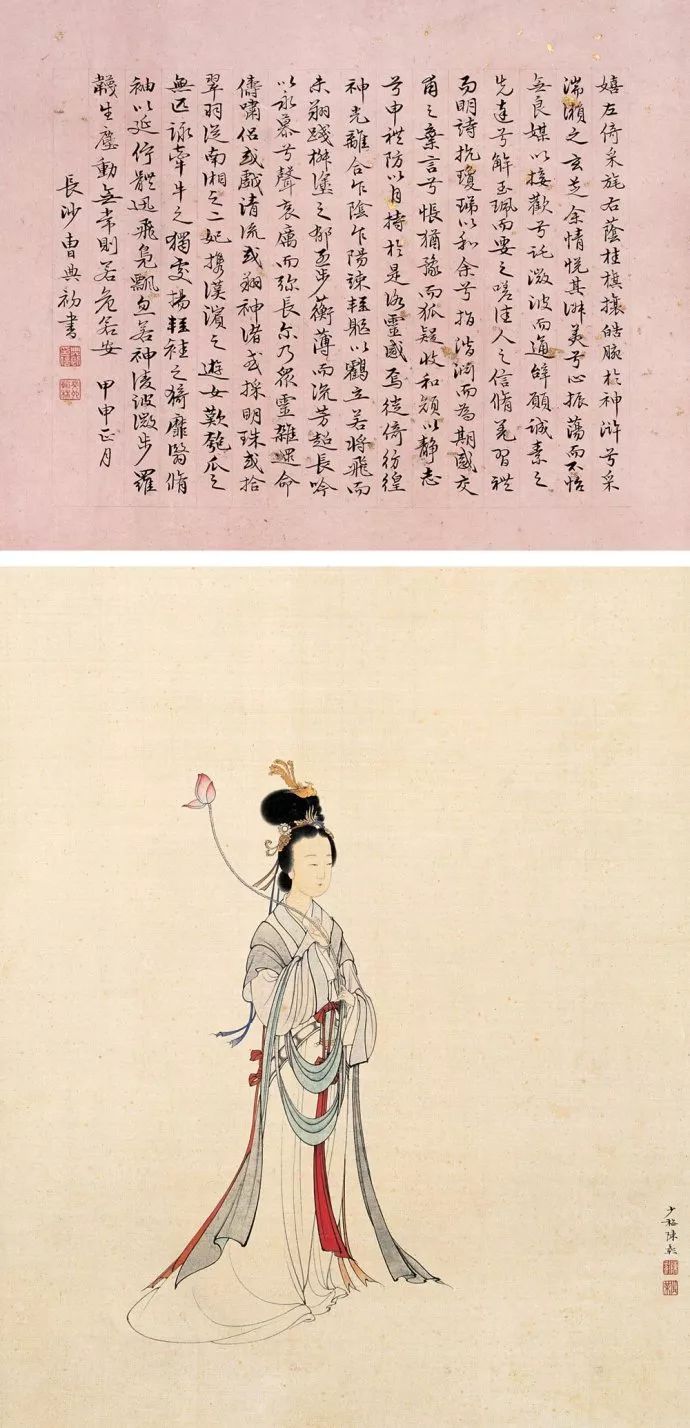 嬉左倚采旄右蔭桂旗攘皓腕於神滸兮采
湍瀨之玄芝余情悅其淑美兮心振蕩而不怡
無良媒以接歡兮託微波而通辭願誠素之
先達兮解玉珮而要之嗟佳人之信脩羌習禮
而明詩抗瓊珶以和余兮指潛淵而為期感交
甫之棄言兮悵猶豫而狐疑收和顏以靜志
兮申禮防以自持於是洛靈感焉徙倚彷徨
神光離合乍陰乍陽竦輕軀以鶴立若將飛而
未翔踐椒塗之郁烈步蘅薄而流芳超長吟
以永慕兮聲哀厲而彌長尒乃眾靈雜遝命
儔嘯侶或戲清流或翔神渚或採明珠或拾
翠羽從南湘之二妃攜漢濱之遊女歎匏瓜之
無匹詠牽牛之獨處揚輕袿之猗靡翳脩
袖以延佇體迅飛鳧飄忽若神凌波微步羅
韈生塵動無常則若危若安 甲申正月
長沙曹典初書
少梅陳